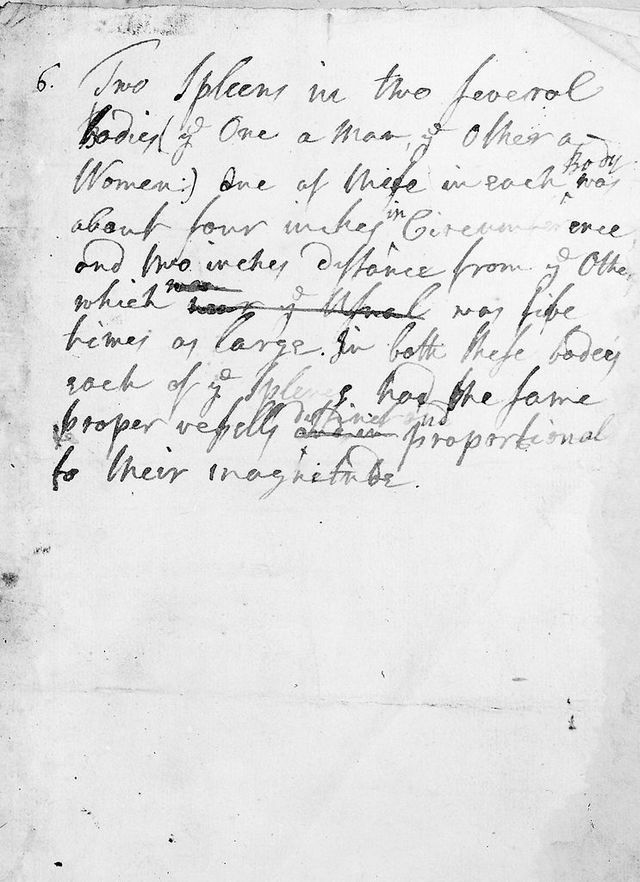 6. Two Spleens in two several
bodies (ye One a Man, ye Other a
Women:) One of these in each Body was
about four inches in Circumference
and two inches distance from ye Other
which was near ye Usual was five
times as large. In both these bodies
each of ye Spleens had the same
proper vessells distinct and proportional
to their magnitude.